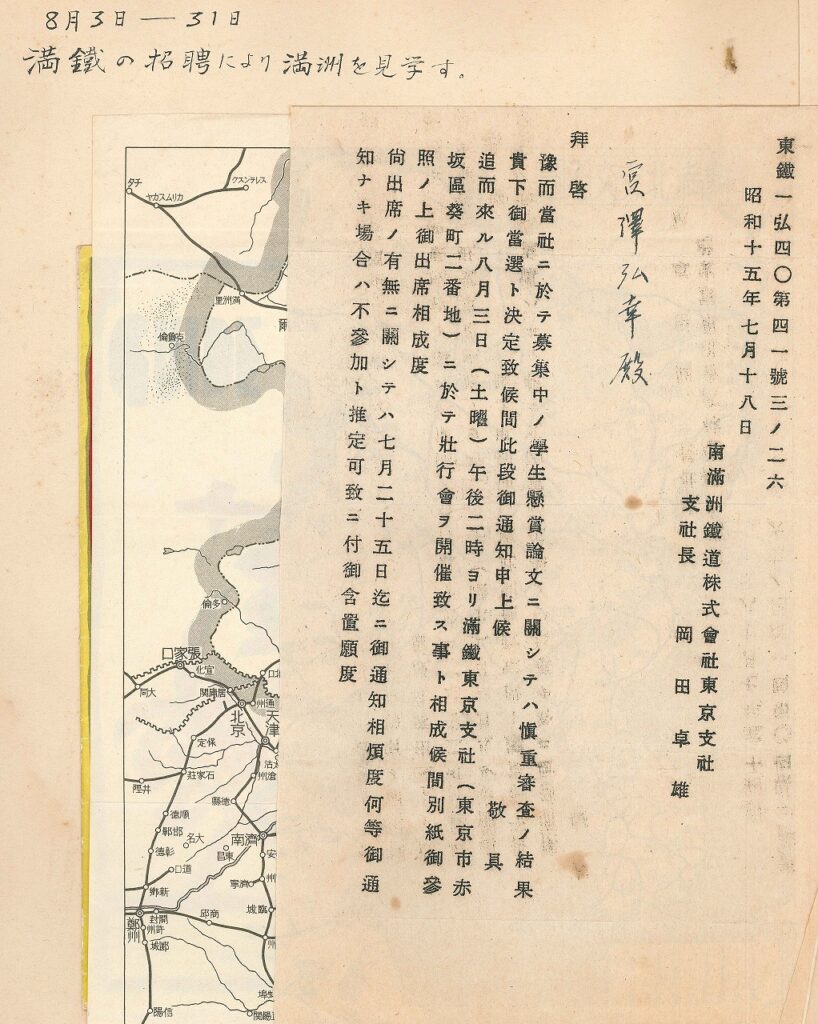 8月3日 — 31日
満鐵の招聘により満洲を見学す。
東鐵一弘四〇第四一號三ノ二六
昭和十五年七月十八日
南滿洲鐵道株式會社東京支社
支社長 岡田卓雄
宮澤弘幸殿
拜啓
豫而當社ニ於テ募集中ノ學生懸賞論文ニ關シテハ愼重審査ノ結果
貴下御當選ト決定致候間此段御通知申上候 敬具
追而來ル八月三日(土曜)午後二時ヨリ滿鐵東京支社(東京市赤
坂區葵町二番地)ニ於テ壯行會ヲ開催致ス事ト相成候間別紙御參
照ノ上御出席相成度
尙出席ノ有無ニ關シテハ七月二十五日迄ニ御通知相煩度何等御通
知ナキ場合ハ不參加ト推定可致ニ付御含置願度
チタ
カリムスカヤ
スレテンスク
滿洲里
爾
克魯倫
多倫
張家口
宣化
大同
居庸關
通州
北京
天津
保定
滄州
石家莊
井陘
德縣
順德
邯鄲
大名
彰德
東昌
濟南
道口
濟寧
新鄉
臨城
開封
鄭州
許州
商邱
郾城
信陽